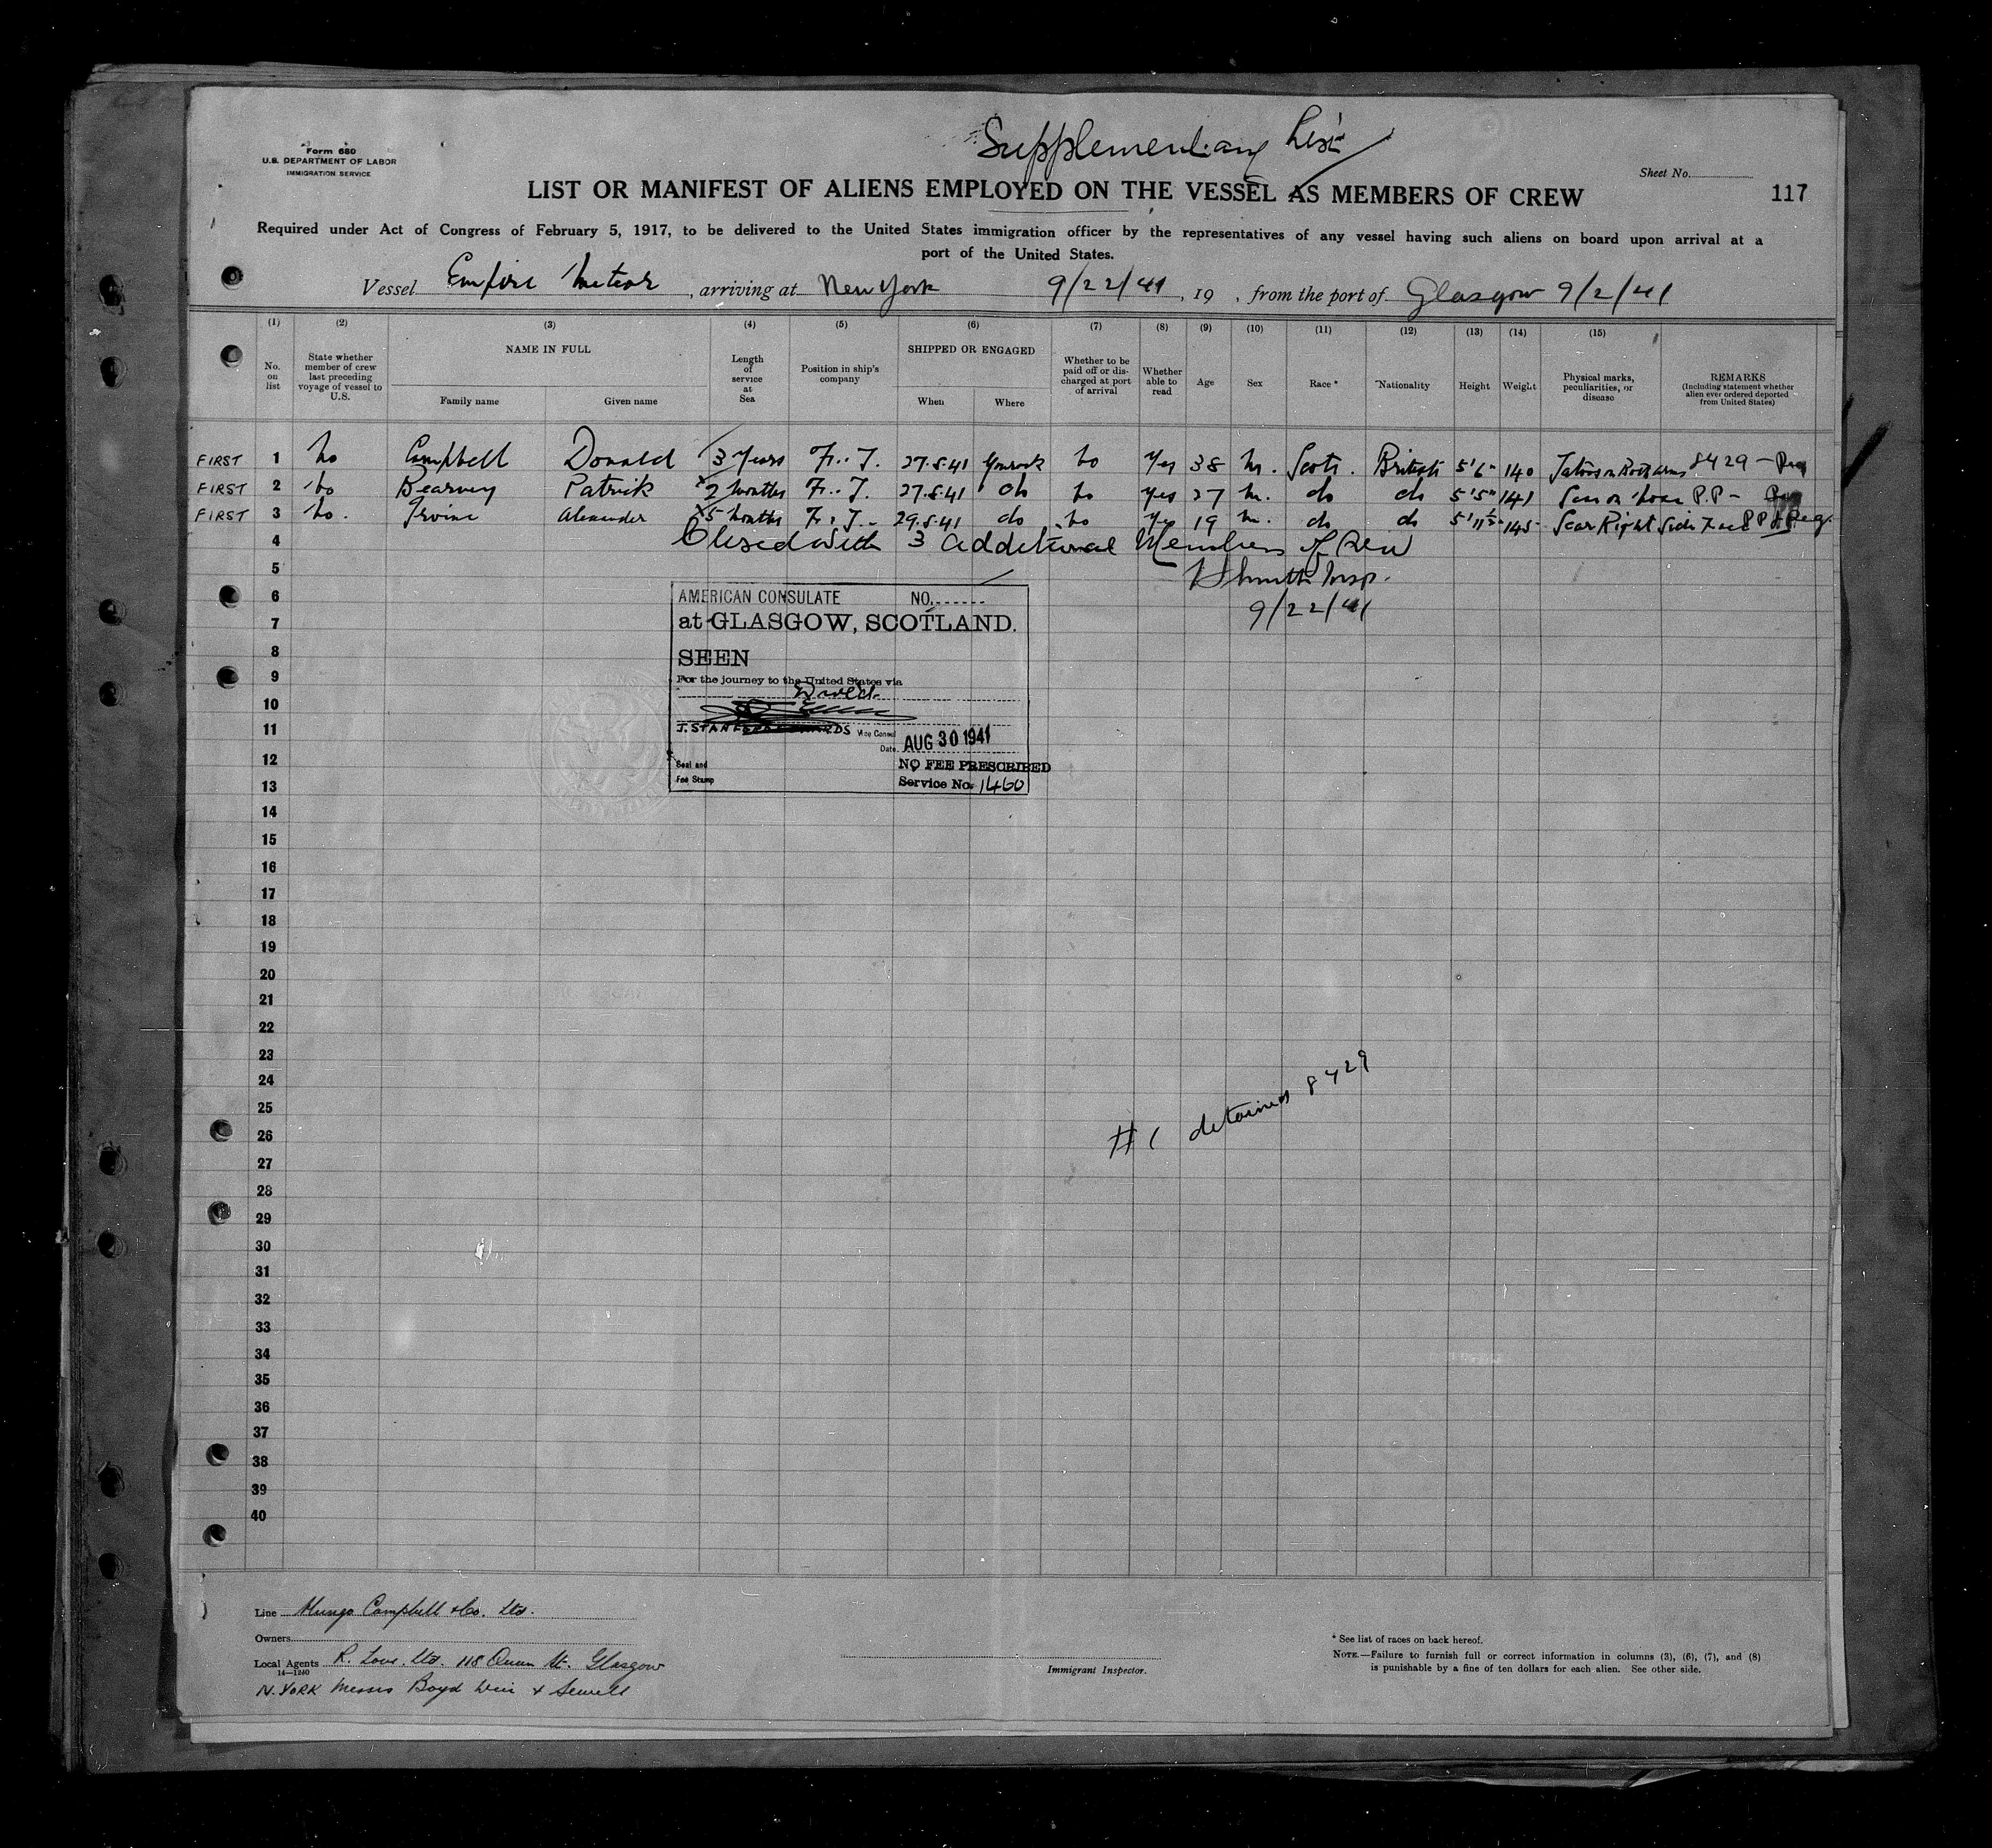 Supplementary List
Form 680
U.S. DEPARTMENT OF LABOR
IMMIGRATION SERVICE
Sheet No.
LIST OR MANIFEST OF ALIENS EMPLOYED ON THE VESSEL AS MEMBERS OF CREW
117
Required under Act of Congress of February 5, 1917, to be delivered to the United States immigration officer by the representatives of any vessel having such aliens on board upon arrival at a
port of the United States.
Vessel Empire Meteor, arriving at New York 9/22/41, 19 , from the port of Glasgow 9/2/41
(1) (2) (3) (4) (5) (6) (7) (8) (9) (10) (11) (12) (13) (14) (15)
No. on list
State whether member of crew last preceding voyage of vessel to U.S.
NAME IN FULL
Family name Given name
Length of service at Sea
Position in ship's company
SHIPPED OR ENGAGED
When Where
Whether to be paid off or discharged at port of arrival
Whether able to read
Age
Sex
Race *
Nationality
Height
Weight
Physical marks, peculiarities, or disease
REMARKS
(Including statement whether alien ever ordered deported from United States)
FIRST 1 No Campbell Donald 3 Years F. T. 27.8.41 Gourock No Yes 38 M. Scots. British 5'6" 140 Tatoos on Both arms 8429 -
FIRST 2 No Bearney Patrick 2 Months F. T. 27.8.41 do No Yes 27 M. do do 5'5" 141 Scar on Nose P.P -
FIRST 3 No. Irvine Alexander 5 Months F. T. 29.8.41 do No Yes 19 M. do do 5'11½" 145 Scar Right Side Face PP
4 Closed with 3 additional Members of Crew
5 Smith Insp.
6 9/22/41
7
8
9
10
11
12
13
14
15
16
17
18
19
20
21
22
23
24
25
26
27
28
29
30
31
32
33
34
35
36
37
38
39
40
AMERICAN CONSULATE NO.
at GLASGOW, SCOTLAND.
SEEN
For the journey to the United States via
Direct.
J. STAN EDWARDS Vice Consul
Date AUG 30 1941
Seal and
Fee Stamp
NO FEE PRESCRIBED
Service No. 1460
#1 detained 8429
Line Mungo Campbell & Co. Ltd.
Owners
Local Agents R. Love. Ltd. 118 Queen St. Glasgow
14—1240
N. YORK Messrs Boyd Weir & Sewell
Immigrant Inspector.
* See list of races on back hereof.
NOTE.—Failure to furnish full or correct information in columns (3), (6), (7), and (8)
is punishable by a fine of ten dollars for each alien. See other side.